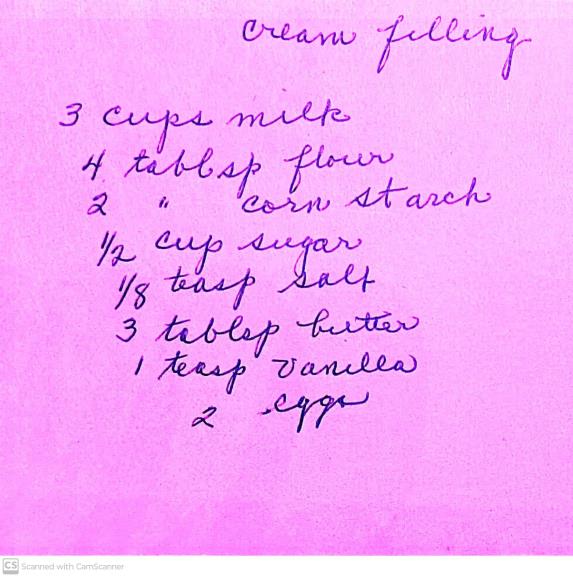 cream filling
3 cups milk
4 tablsp flour
2 " corn starch
1/2 cup sugar
1/8 teasp salt
3 tablsp butter
1 teasp vanilla
2 eggs
CS Scanned with CamScanner